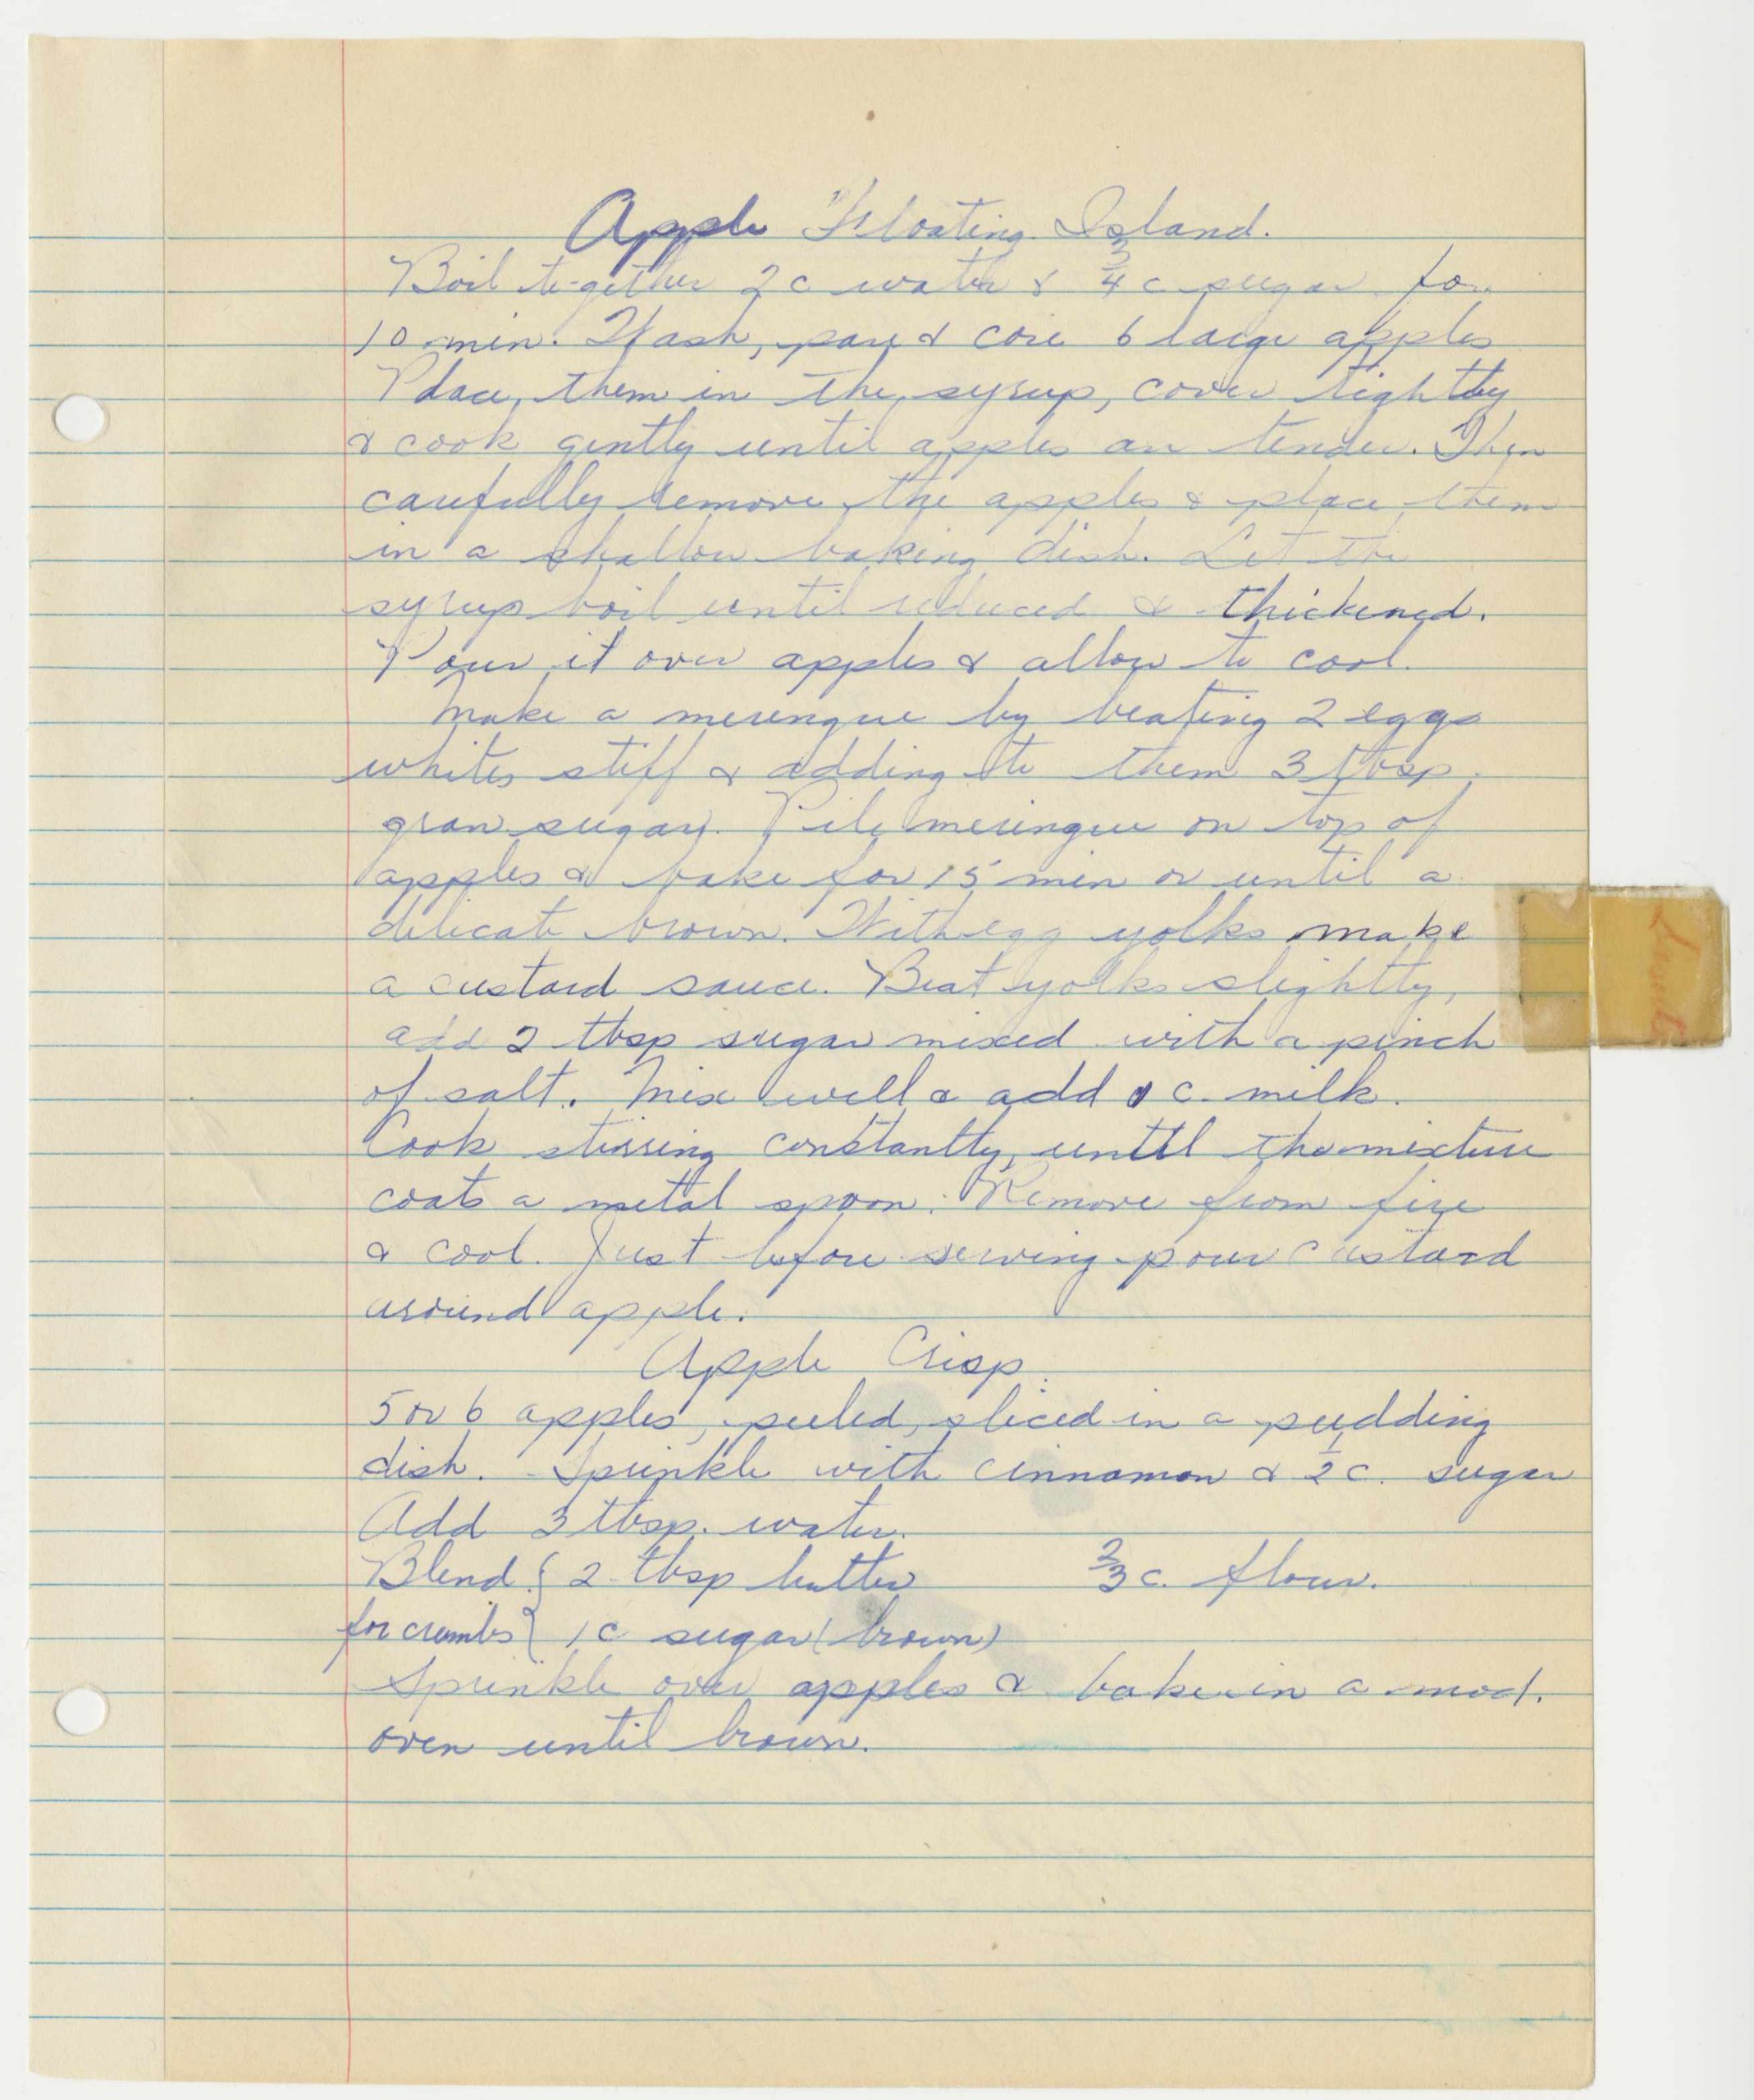 Apple Floating Island.
Boil together 2 c water & 3/4 c sugar for
10 min. Wash, pare & core 6 large apples
Place them in the syrup, cover tightly
& cook gently until apples are tender. Then
carefully remove the apples & place them
in a shallow baking dish. Let the
syrup boil until reduced & thickened.
Pour it over apples & allow to cool.
Make a meringue by beating 2 eggs
whites stiff & adding to them 3 tbsp.
gran sugar. Pile meringue on top of
apples & bake for 15 min or until a
delicate brown. With egg yolks make
a custard sauce. Beat yolks slightly,
add 2 tbsp sugar mixed with a pinch
of salt. Mix well & add 1 c. milk.
Cook stirring constantly, until the mixture
coats a metal spoon. Remove from fire
& cool. Just before serving pour custard
around apple.
Apple Crisp.
5 or 6 apples, peeled, sliced in a pudding
dish. Sprinkle with cinnamon & 1/2 c. sugar
Add 3 tbsp. water.
Blend { 2 tbsp butter 2/3 c. flour.
for crumbs { 1 c sugar (brown)
Sprinkle over apples & bake in a mod.
oven until brown.